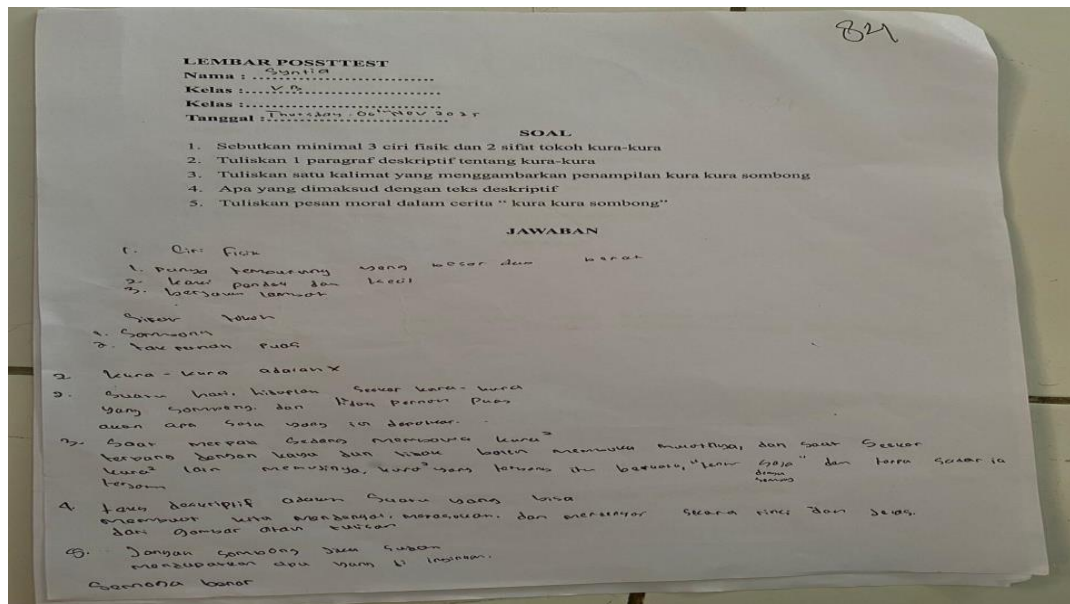 84
LEMBAR POSTTEST
Nama : Syntia
Kelas : V.B
Kelas :
Tanggal : Thursday. 06th Nov 2025
SOAL
1. Sebutkan minimal 3 ciri fisik dan 2 sifat tokoh kura-kura
2. Tuliskan 1 paragraf deskriptif tentang kura-kura
3. Tuliskan satu kalimat yang menggambarkan penampilan kura kura sombong
4. Apa yang dimaksud dengan teks deskriptif
5. Tuliskan pesan moral dalam cerita " kura kura sombong"
JAWABAN
1. Ciri Fisik
1. Punya tempurung yang besar dan berat
2. kaki pendek dan kecil
3. berjalan lambat
Sifat tokoh
1. Sombong
2. tak pernah puas
2. kura - kura adalah x
2. Suatu hari, hiduplah seekor kura-kura
yang sombong. dan tidak pernah puas
akan apa yang
3. Saat merpati sedang membawa kura²
terbang dengan kayu dan tidak boleh membuka mulutnya, dan saat Seekor
kura² lain memujinya, kura² yang terbang itu berkata, "tentu saja" dan tanpa sadar ia
dengan
sombong
4. teks deskriptif adalah Suatu yang bisa
membuat kita mendengar, merasakan, dan secara rinci dan jelas.
dari gambar atau tulisan
5. Jangan sombong jika sudah
mendapatkan apa yang di inginkan.
Semoga benar